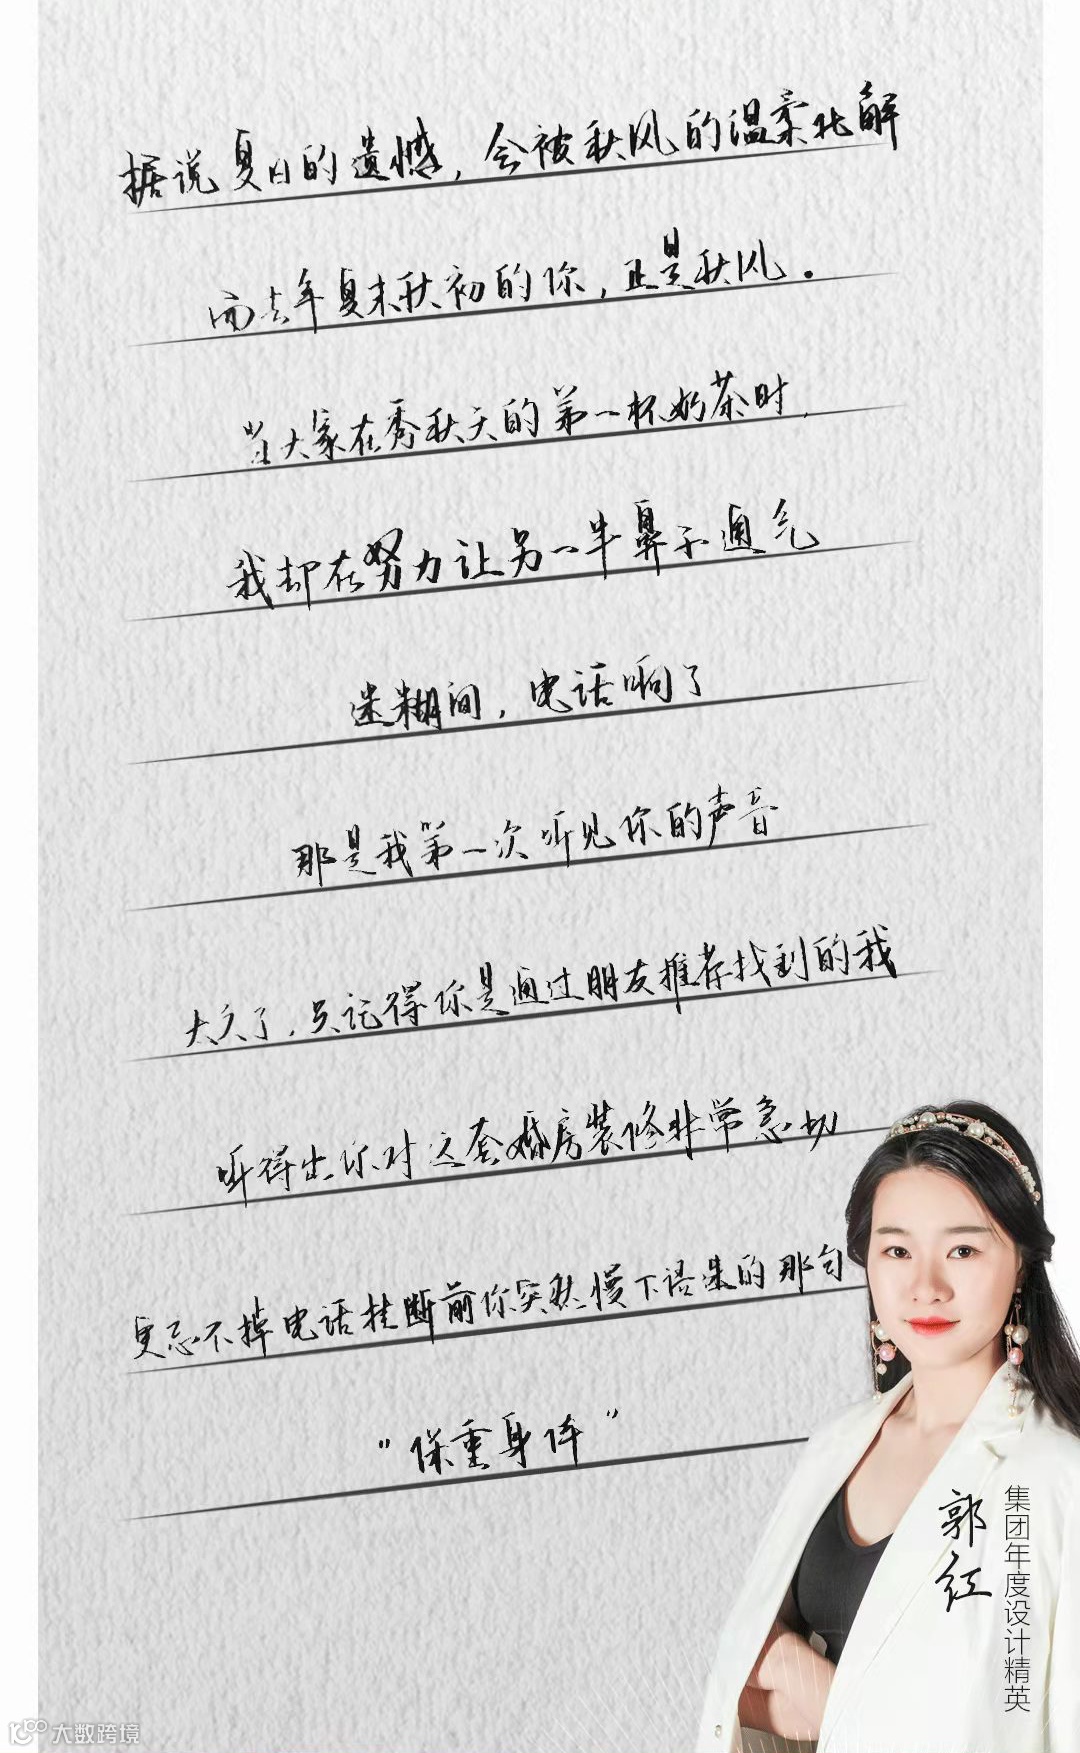 据说夏日的遗憾，会被秋风的温柔化解
而去年夏末秋初的你，正是秋风。
当大家在秀秋天的第一杯奶茶时，
我却在努力让另一半鼻子通气
迷糊间，电话响了
那是我第一次听见你的声音
太久了，只记得你是通过朋友推荐找到的我
听得出你对这套婚房装修非常急切
更忘不掉电话挂断前你突然慢下语速的那句
“保重身体”
郭红
集团年度设计精英
大数跨境